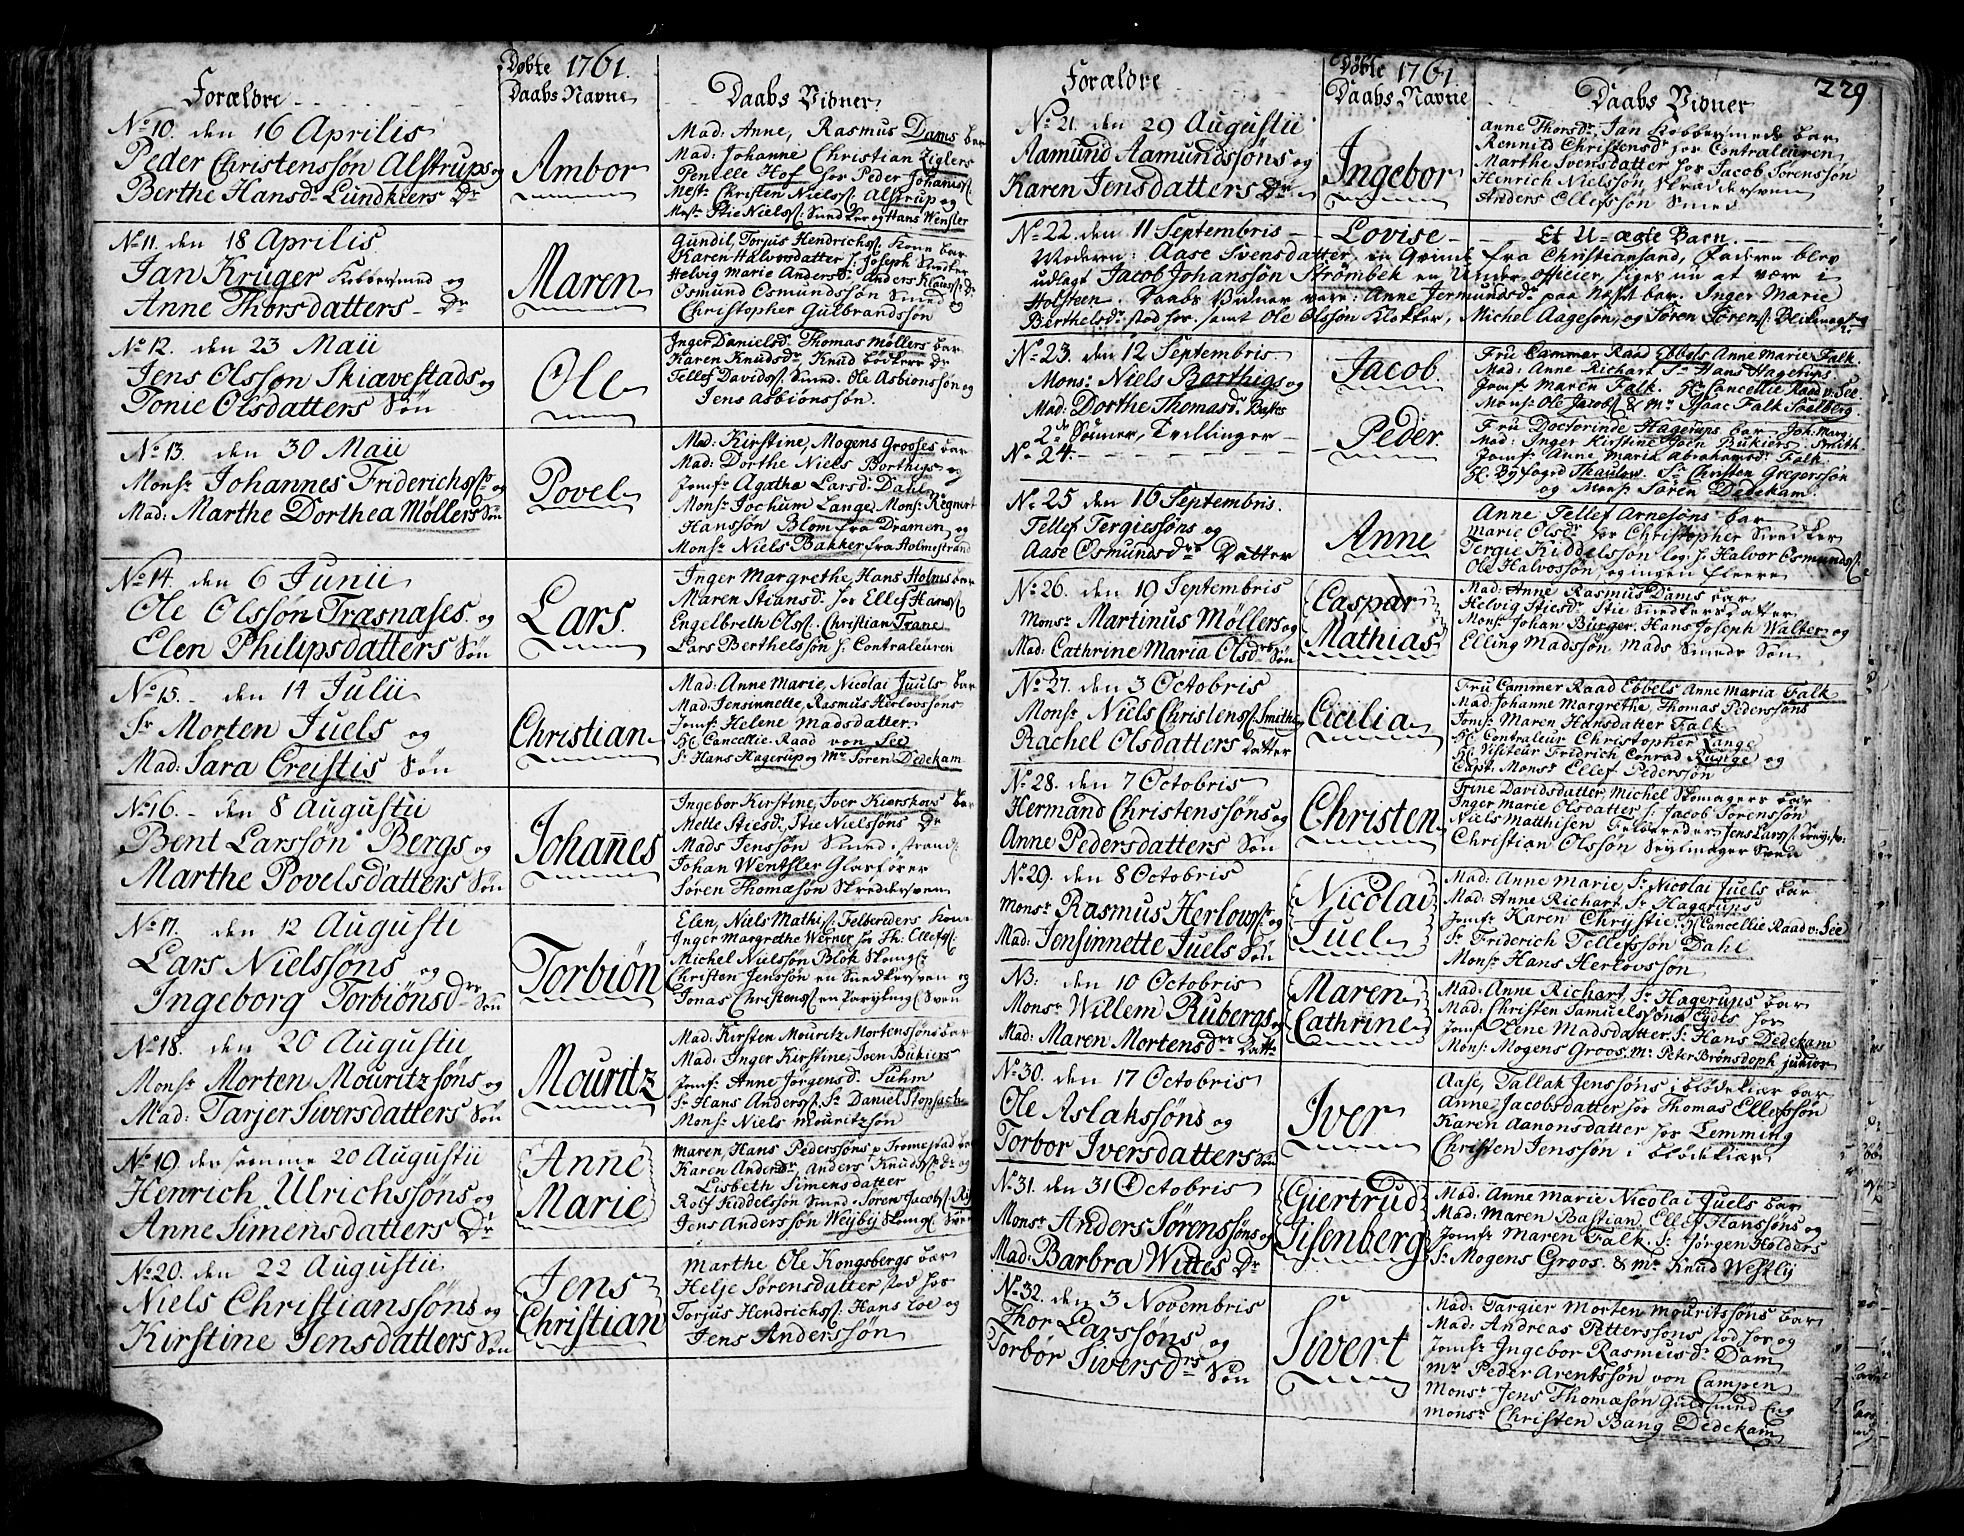 Døbte 1761.
Forældre
Daabs Navne
Daabs Vidner
No 10. den 16 Aprilis
Peder Christenssøn Alstrups og
Berthe Hansd. Lundkiers Dr
Ambor
Mad: Anne, Rasmus Dams bar
Mad: Johanne Christian Ziglers
Pernelle Hof for Peder Johans
Mest: Christen Niels. Alstrup og
Mest: Stie Niels. Snedker og Hans Wensler
No 11. den 18 Aprilis
Jan Krüger Kobbersmed og
Anne Thorsdatters Dr
Maren
Gundil, Torjus Hendrichs. Kone bar
Karen Halvorsdatter h. Joseph Snedker
Helvig Marie Andersd. Anders Klaus. Dr
Osmund Osmundssøn Smed og
Christopher Gulbrandssøn
No 12. den 23 Maii
Jens Olssøn Skiævestads og
Tonie Olsdatters Søn
Ole
Inger Danielsd. Thomas Møllers bar
Karen Knudsdr. Knud Bødkers Dr
Tellef Davids. Smed. Ole Asbiønssøn og
Jens Asbiønssøn.
No 13. den 30 Maii
Monsr Johannes Friderichs. og
Mad: Marthe Dorthea Møllers Søn
Povel
Mad: Kirstine, Mogens Grooses bar
Mad: Dorthe Niels Borthigs og
Jomfr Agatha Larsd. Dahl
Monsr Jochum Lange, Monsr Regnert
Hanssøn Blom fra Dramen, og
Monsr Niels Bakker fra Holmestrand
No 14. den 6 Junii
Ole Olssøn Trasnases og
Elen Philipsdatters Søn
Lars.
Inger Margrethe, Hans Holms bar
Maren Stiansd. for Ellef Hans.
Engelbreth Ols. Christian Trane
Lars Berthelssøn h. Contraleuren
No 15. den 14 Julii
Sr Morten Juels og
Mad: Sara Creistis Søn
Christian
Mad: Anne Marie, Nicolai Juuls bar
Mad: Jensinnette, Rasmus Herlovssøns
Jomfr Helene Madsdatter
Hr Cancellie-Raad von See
Sr Hans Hagerup og Mr Søren Dedekam
No 16. den 8 Augustii
Bent Larssøn Bergs og
Marthe Povelsdatters Søn
Johannes
Ingebor Kirstine, Iver Kierskovs bar
Mette Stiesd. Stie Nielssøns Dr
Mads Jenssøn Smed i strand
Johan Wentsler Glarfører
Søren Thomasøn Skredersven
No 17. den 12 Augusti
Lars Nielssøns og
Ingeborg Torbiønsdrs Søn
Torbiøn
Elen, Niels Mathis. Felbereders Kone
Inger Margrethe Werner for Th: Ellefs.
Michel Nielssøn Blok Skomgr
Christen Jenssøn en Snedkersven og
Jonas Christens. en Perykmgr Sven
No 18. den 20 Augustii
Monsr Morten Mouritzsøns og
Mad: Tarjer Siversdatters Søn
Mouritz
Mad: Kirsten Mouritz Mortenssøns bar
Mad: Inger Kirstine, Joen Bukiers
Jomfr Anne Jørgensd. Suhm
Sr Hans Anders. Sr Daniel Stopsack
Monsr Niels Mouritzsøn
No 19. den samme 20 Augustii
Henrich Ulrichssøns og
Anne Simensdatters Dr
Anne
Marie
Maren, Hans Pederssøns p Tromestad bar
Karen Andersdr, Anders Knuds. Dr og
Lisbeth Simensdatter
Rolf Kiddelssøn Smed. Søren Jacobs.
Jens Anderssøn Weyby Skomgr Sven
No 20. den 22 Augustii
Niels Christianssøns og
Kirstine Jensdatters Søn
Jens
Christian
Marthe Ole Kongsbergs bar
Helje Sørensdatter stod hos
Torjus Hendrichs. Hans Loe og
Jens Anderssøn
Døbte 1761
229
Forældre
Daabs Navne
Daabs Vidner
No 21. den 29 Augustii
Aamund Aamundssøns og
Karen Jensdatters Dr
Ingebor
Anne Thorsdr. Jan Kobbersmeds bar
Rennild Christensdr for Contraleuren
Marthe Svensdatter for Jacob Sørenssøn
Henrich Nielssøn Skræddersven
Anders Ellefssøn Smed
No 22. den 11 Septembris
Lovise
Et U-ægte Barn.
Moderen: Aase Svensdatter, en Qvinde fra Christiansand, Faderen blev
udlagt Jacob Johanssøn Strømbek en Under officier, siges nu at være i
Holsteen. Daabs Vidner vare: Anne Jermundsdr paa Næsset bar. Inger Marie
Berthelsdr stod hos. samt Ole Olssøn Klokker, Michel Aagesøn, og Søren Sørens. Blikmager
No 23. den 12 Septembris.
Monsr Niels Borthigs og
Mad: Dorthe Thomasdr Basses
2de Sønner, Tvillinger
Jacob
Fru Cammer Raad Ebbels Anne Marie Falk.
Mad: Anne Richart Sr Hans Hagerups
Jomfr Maren Falk. Hr Cancellie Raad v. See
Monsr Ole Jacobs. & Mr Isaac Falk Soelberg
No 24.
Peder.
Fru Doctorinde Hagerups bar, Joh. Marg. Smith.
Mad: Inger Kirstine Joen Bukiers
Jomfr Anne Maria Abrahamsdr Falk
Hr Byfoged Thaulow. Sr Christen Gregerssøn
og Monsr Søren Dedekam.
No 25 den 16 Septembris.
Tellef Tergiessøns og
Aase Osmundsdrs Datter
Anne
Anne Tellef Arnesøns bar
Marie Olsdr for Christopher Snedker
Tergie Kiddelssøn log. h. Halvor Osmunds.
Ole Halvorsøn, og ingen fleere
No 26. den 19 Septembris
Monsr Martinus Møllers og
Mad: Cathrine Maria Olsdrs Søn
Caspar
Mathias
Mad: Anne Rasmus Dams bar
Helvig Stiesd. Stie Snedkers Datter
Monsr Johan Bürger. Hans Joseph Walter og
Elling Madssøn, Mads Smeds Søn
No 27. den 3 Octobris
Monsr Niels Christens. Smiths og
Rachel Olsdatters Datter
Cicilia
Fru Cammer Raad Ebbels Anne Maria Falk
Mad: Johanne Margrethe, Thomas Pederssøns
Jomfr Maren Hansdatter Falk
Hr Contraleur Christopher Lange
Hr Visiteur Fridrich Conrad Runge og
Capt: Monsr Ellef Pederssøn
No 28. den 7 Octobris
Hermand Christenssøns og
Anne Pedersdatters Søn
Christen
Trine Davidsdatter, Michel Skomagers bar
Inger Marie Olsdatter h. Jacob Sørenssøn
Niels Matthisen Felbereder, Jens Lars.
Christian Olssøn Seylmager Sven
No 29. den 8 Octobris
Monsr Rasmus Herlovs. og
Mad: Jensinnette Juels Søn
Nicolai
Juel
Mad: Anne Marie, Sr Nicolai Juels bar
Mad: Anne Richart, Sr Hagerups
Jomfr Karen Chrystie. Hr Cancellie Raad v. See
Sr Friderich Tellefssøn Dahl
Monsr Hans Herlovssøn
N3: den 10 Octobris
Monsr Willem Rubergs og
Mad: Maren Mortensdrs Dattr
Maren
Cathrine
Mad: Anne Richart, Sr Hagerups bar
Mad: Christen Samuelssøns Eydes hos
Jomfr Lene Madsdatter, Sr Hans Dedekam
Monsr Mogens Groos. Mr Peter Brønsdoph junior
No 30. den 17 Octobris
Ole Aslakssøns og
Torbor Iversdatters Søn
Iver
Aase, Tallak Jenssøns i blødekiær bar
Anne Jacobsdatter for Thomas Ellefssøn
Karen Aanonsdatter hos Lemming
Christen Jenssøn i blødekiær
No 31. den 31 Octobris
Monsr Anders Sørenssøns og
Mad: Barbra Wittes Dr
Giertrud
Sisenberg
Mad: Anne Marie Nicolai Juels bar
Mad: Maren Bastian, Ellef Hanssøns og
Jomfr Maren Falk. Sr Jørgen Holders
Sr Mogens Groos. & Mr Knud Westly
No 32. den 3 Novembris
Thor Larssøns og
Torbør Siversdrs Søn
Sivert
Mad: Targier Morten Mouritssøns bar
Mad: Andreas Petterssøns stod hos og
Jomfr Ingebor Rasmusdr Dam
Mr Peder Arentssøn von Campen
Monsr Jens Thomæsøn Guldsmed Eng
Monsr Christen Bang Dedekam